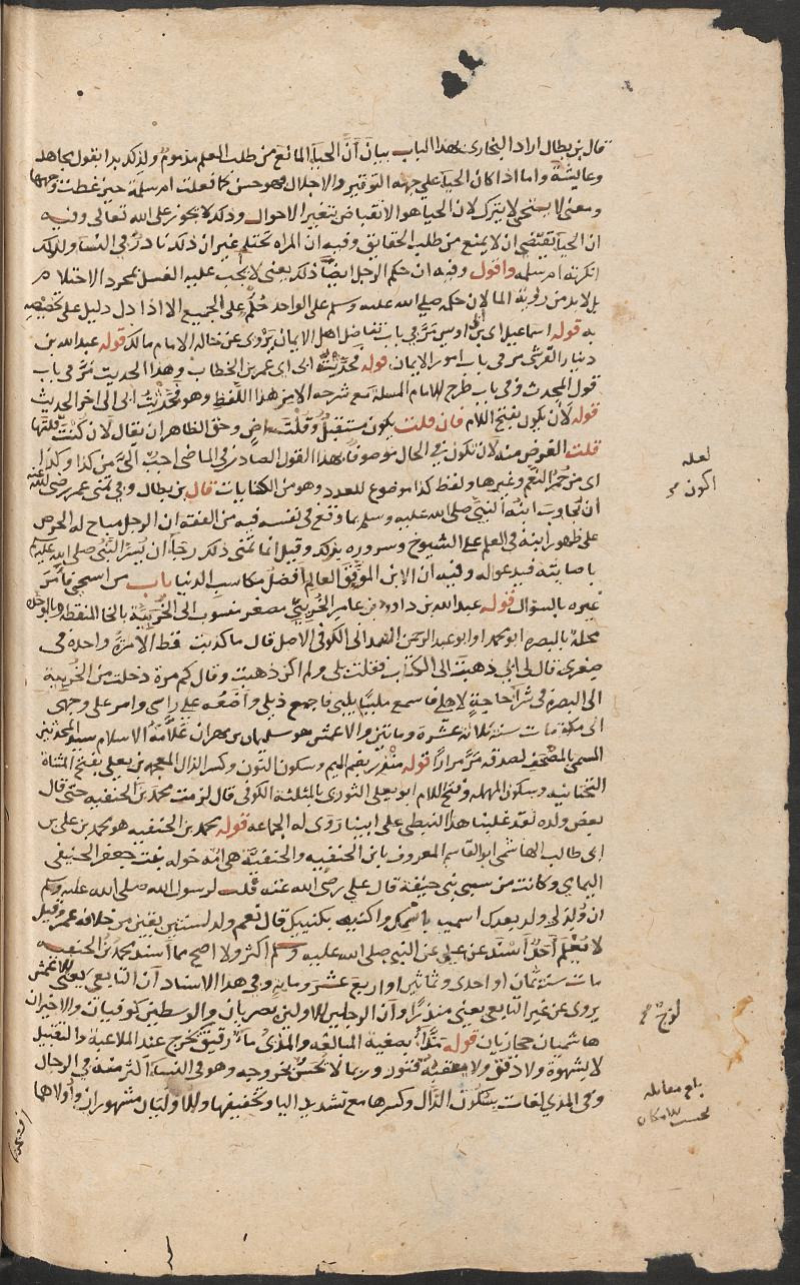 قال بن بطال اراد البخارى بهذا الباب بيان أنّ الحيا المانع من طلب العلم مذموم ولذلك بدا بقول مجاهد
وعايشة واما اذا كان الحيا علي جهة التوقير والاجلال فهو حسن كما فعلت ام سلمة حين غطت وجهها
ومعنى لا يستحى لا يترك لان الحيا هو الانقباض بتغير الاحوال وذلك لا يجوز على الله تعالى وفيه
ان الحيا يقتضى ان لا يمنع من طلب الحقايق وفيه ان المراه تحتلم غير ان ذلك نادر فى النسا ولذلك
انكرته ام سلمه واقول وفيه ان حكم الرجل ايضا ذلك يعنى لا يجب عليه الغسل بمجرد الاحتلام
بل لابد من روية الما لان حكمه صلى الله عليه وسلم على الواحد حكم على الجميع الا اذا دل دليل على تخصيصه
به قوله اسماعيل اى بن ابى اويس مَرّ فى باب تفاضل اهل الايمان يروى عن خاله الامام مالك قوله عبد الله بن
دينار القرشى مر فى باب امور الايمان قوله فحدّثت ابى اى عمر بن الخطاب وهذا الحديث مَرّ فى باب
قول المحدث وفى باب طرح الامام المسلة مع شرحه الا من هذا اللفظ وهو فحدّثت ابى الى اخر الحديث
قوله لان يكون بفتح اللام فان قلت يكون مستقبل وقلت ماض وحق الظاهر ان يقال لان كنت قلتها
قلت الغرض منه لان تكون فى الحال موصوفا بهذا القول الصادر فى الماضى احبّ الىّ من كذا وكذا
اى من حُمر النعم وغيرها ولفظ كذا موضوع للعدد وهو من الكنايات قال بن بطال وفى تمنى عمر رضى الله عنه
أن يُجاوب ابنُه النبىَّ صلى الله عليه وسلم بما وقع فى نفسه فيه من الفقه ان الرجل مباح له الحرص
على ظهور ابنه فى العلم على الشيوخ وسروره بذلك وقيل انما تمنى ذلك رجا ان يسرّ النبىُّ صلى الله عليه وسلم
باصابته فيدعو له وفيه ان الابن الموفق العالم افضل مكاسب الدنيا باب من استحى فامَر
غيره بالسوال قوله عبد الله بن داود بن عامر الخُرَيبى مصغر منسوب الى الخُريبة بالخا المنقطه وبالموحده
محلة بالبصره ابو محمد او ابو عبد الرحمن الهمدانى الكوفى الاصل قال ما كذبت قط الا مرّة واحده فى
صغرى قال لى ابى ذهبتَ الى الكُتّاب فقلت بلى ولم اكن ذهبت وقال كم مرة دخلت من الخُريبة
الى البصرة فى شرا حاجةٍ لاهلى فاسمع ملبّيا يلبى فاجمع ذيلى واضعُه على راسى وامر على وجهى
الى مكة مات سنة ثلاثة عشرة ومائتين والاعمش هو سليمان بن مهران عَلّامَةُ الاسلام سيد المحدثين
المسمى بالمصحف لصدقه مَرّ مرارًا قوله منذر بضم الميم وسكون النون وكسر الذال المعجمه بن يعلى بفتح المثناة
التحتانيه وسكون المهمله وفتح اللام ابو يعلى الثورى بالمثلثة الكوفى قال لزمت محمد بن الحنفيه حتى قال
بعض ولده لقد غلبنا هذا النبطى على ابينا رَوَى له الجماعه قوله محمد بن الحنفيه هو محمد بن على بن
ابى طالب الهاشمى ابو القاسم المعروف بابن الحنفيه والحنفيّة هى امّه خوله بنت جعفر الحنيفى
اليمامى وكانت من سبى بنى حنيفة قال على رضى الله عنه قلت لرسول الله صلى الله عليه وسلم
ان وُلِدَ لى ولد بعدك اسميه باسمك واكنيه بكنيتك قال نعم ولد لسنتين بقين من خلافه عمر قيل
لا نعْلم احدًا أسْنَدَ عن على عن النبى صلى الله عليه وسلم اكثر ولا اصح مما أسند محمد بن الحنفيه
مات سنة ثمان او احدى وثمانين او اربع عشر ومايه وفى هذا الاسناد أن التابعى يعنى الاعمش
يروى عن غير التابعى يعنى منذرًا وأن الرجلين الاولين بصريان والوسطين كوفيان والاخيران
هاشميان حجازيان قوله مَذّاءً بصغية المبالغه والمذىُ ماء رقيق يخرج عند الملاعبة والتقبيل
لا بشهوة ولا دفق ولا يعقبه فتور وربما لا يحسّ بخروجه وهو فى النسا اكثر منهُ فى الرجال
وفى المذى لغات بسكون الذّال وكسرها مع تشديد اليا وتخفيفها والاوليان مشهوران واولاها
لعله
اكون
بلغ مقابله
بحسب الامكان